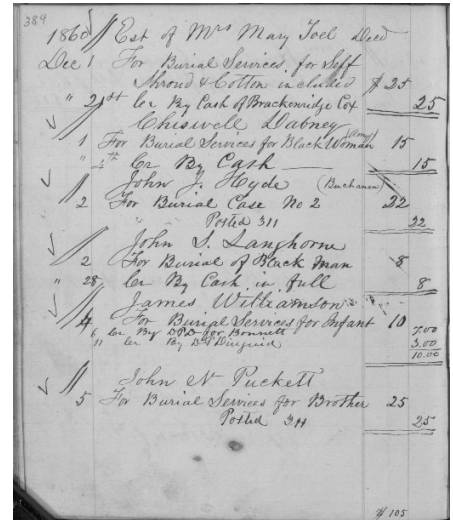 384
1860 Est of Mrs Mary Toel Decd
Dec 1 For Burial Services for Self
Shroud & Cotton included $ 25
" 21st Cr By Cash of Brackenridge Cox 25
Chiswell Dabney
1 For Burial Services for Black Woman (Amy) 15
" 4th Cr By Cash 15
John J. Hyde (Buchanan)
2 For Burial Case No 2 22
" " Posted 311 22
John S. Langhorne
2 For Burial of Black Man 8
" 28 Cr By Cash in full 8
James Williamson
4 For Burial Services for Infant 10
6 Cr By D.P.D. for Bonnett 7.00
11 Cr By D P Diuguid 3.00
10.00
John N Puckett
5 For Burial Services for Brother 25
Posted 311 25
$ 105